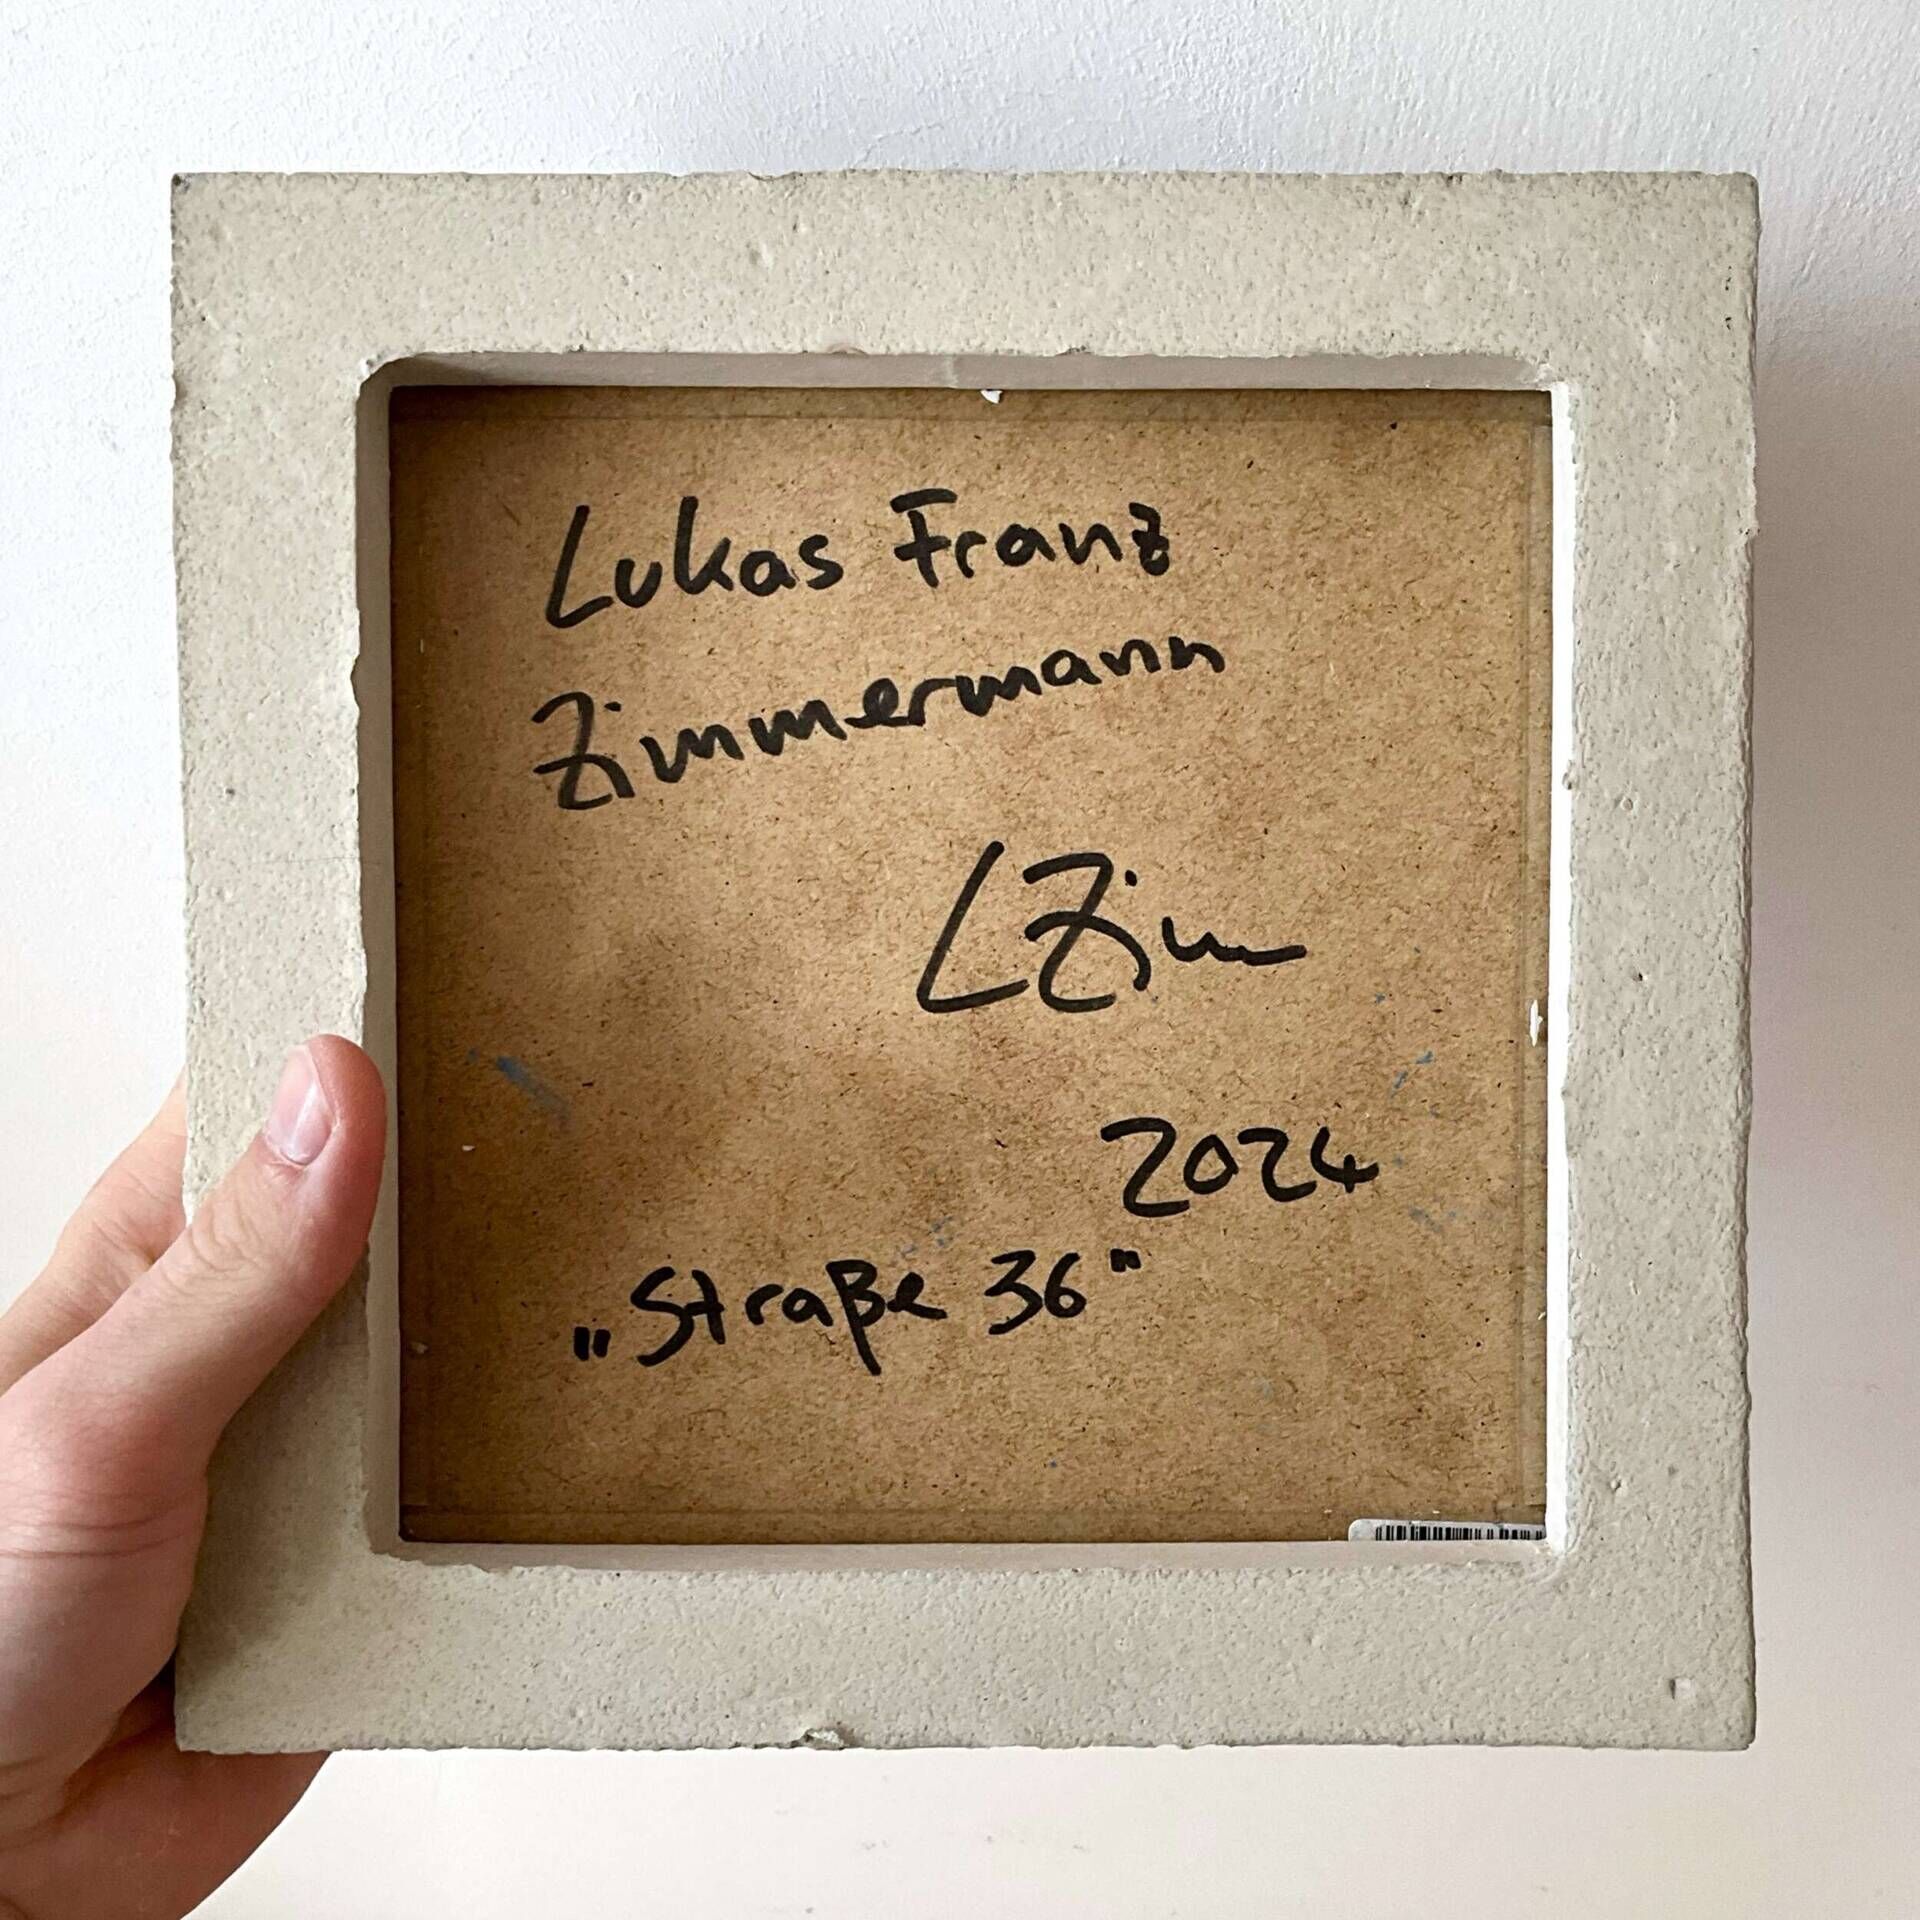 Lukas Franz
Zimmermann
LZim
2024
„Straße 36"